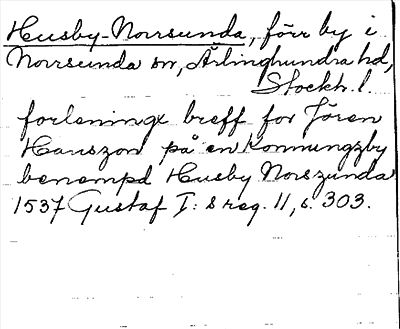 Husby-Norrsunda, förr by i
Norrsunda sn, Ärlinghundra hd,
Stockh. l.
forleningx breff for Jören
Hanszon på en Konnungzby
benempd Husby Norszunda
1537 Gustaf I: s reg. 11, s. 303.